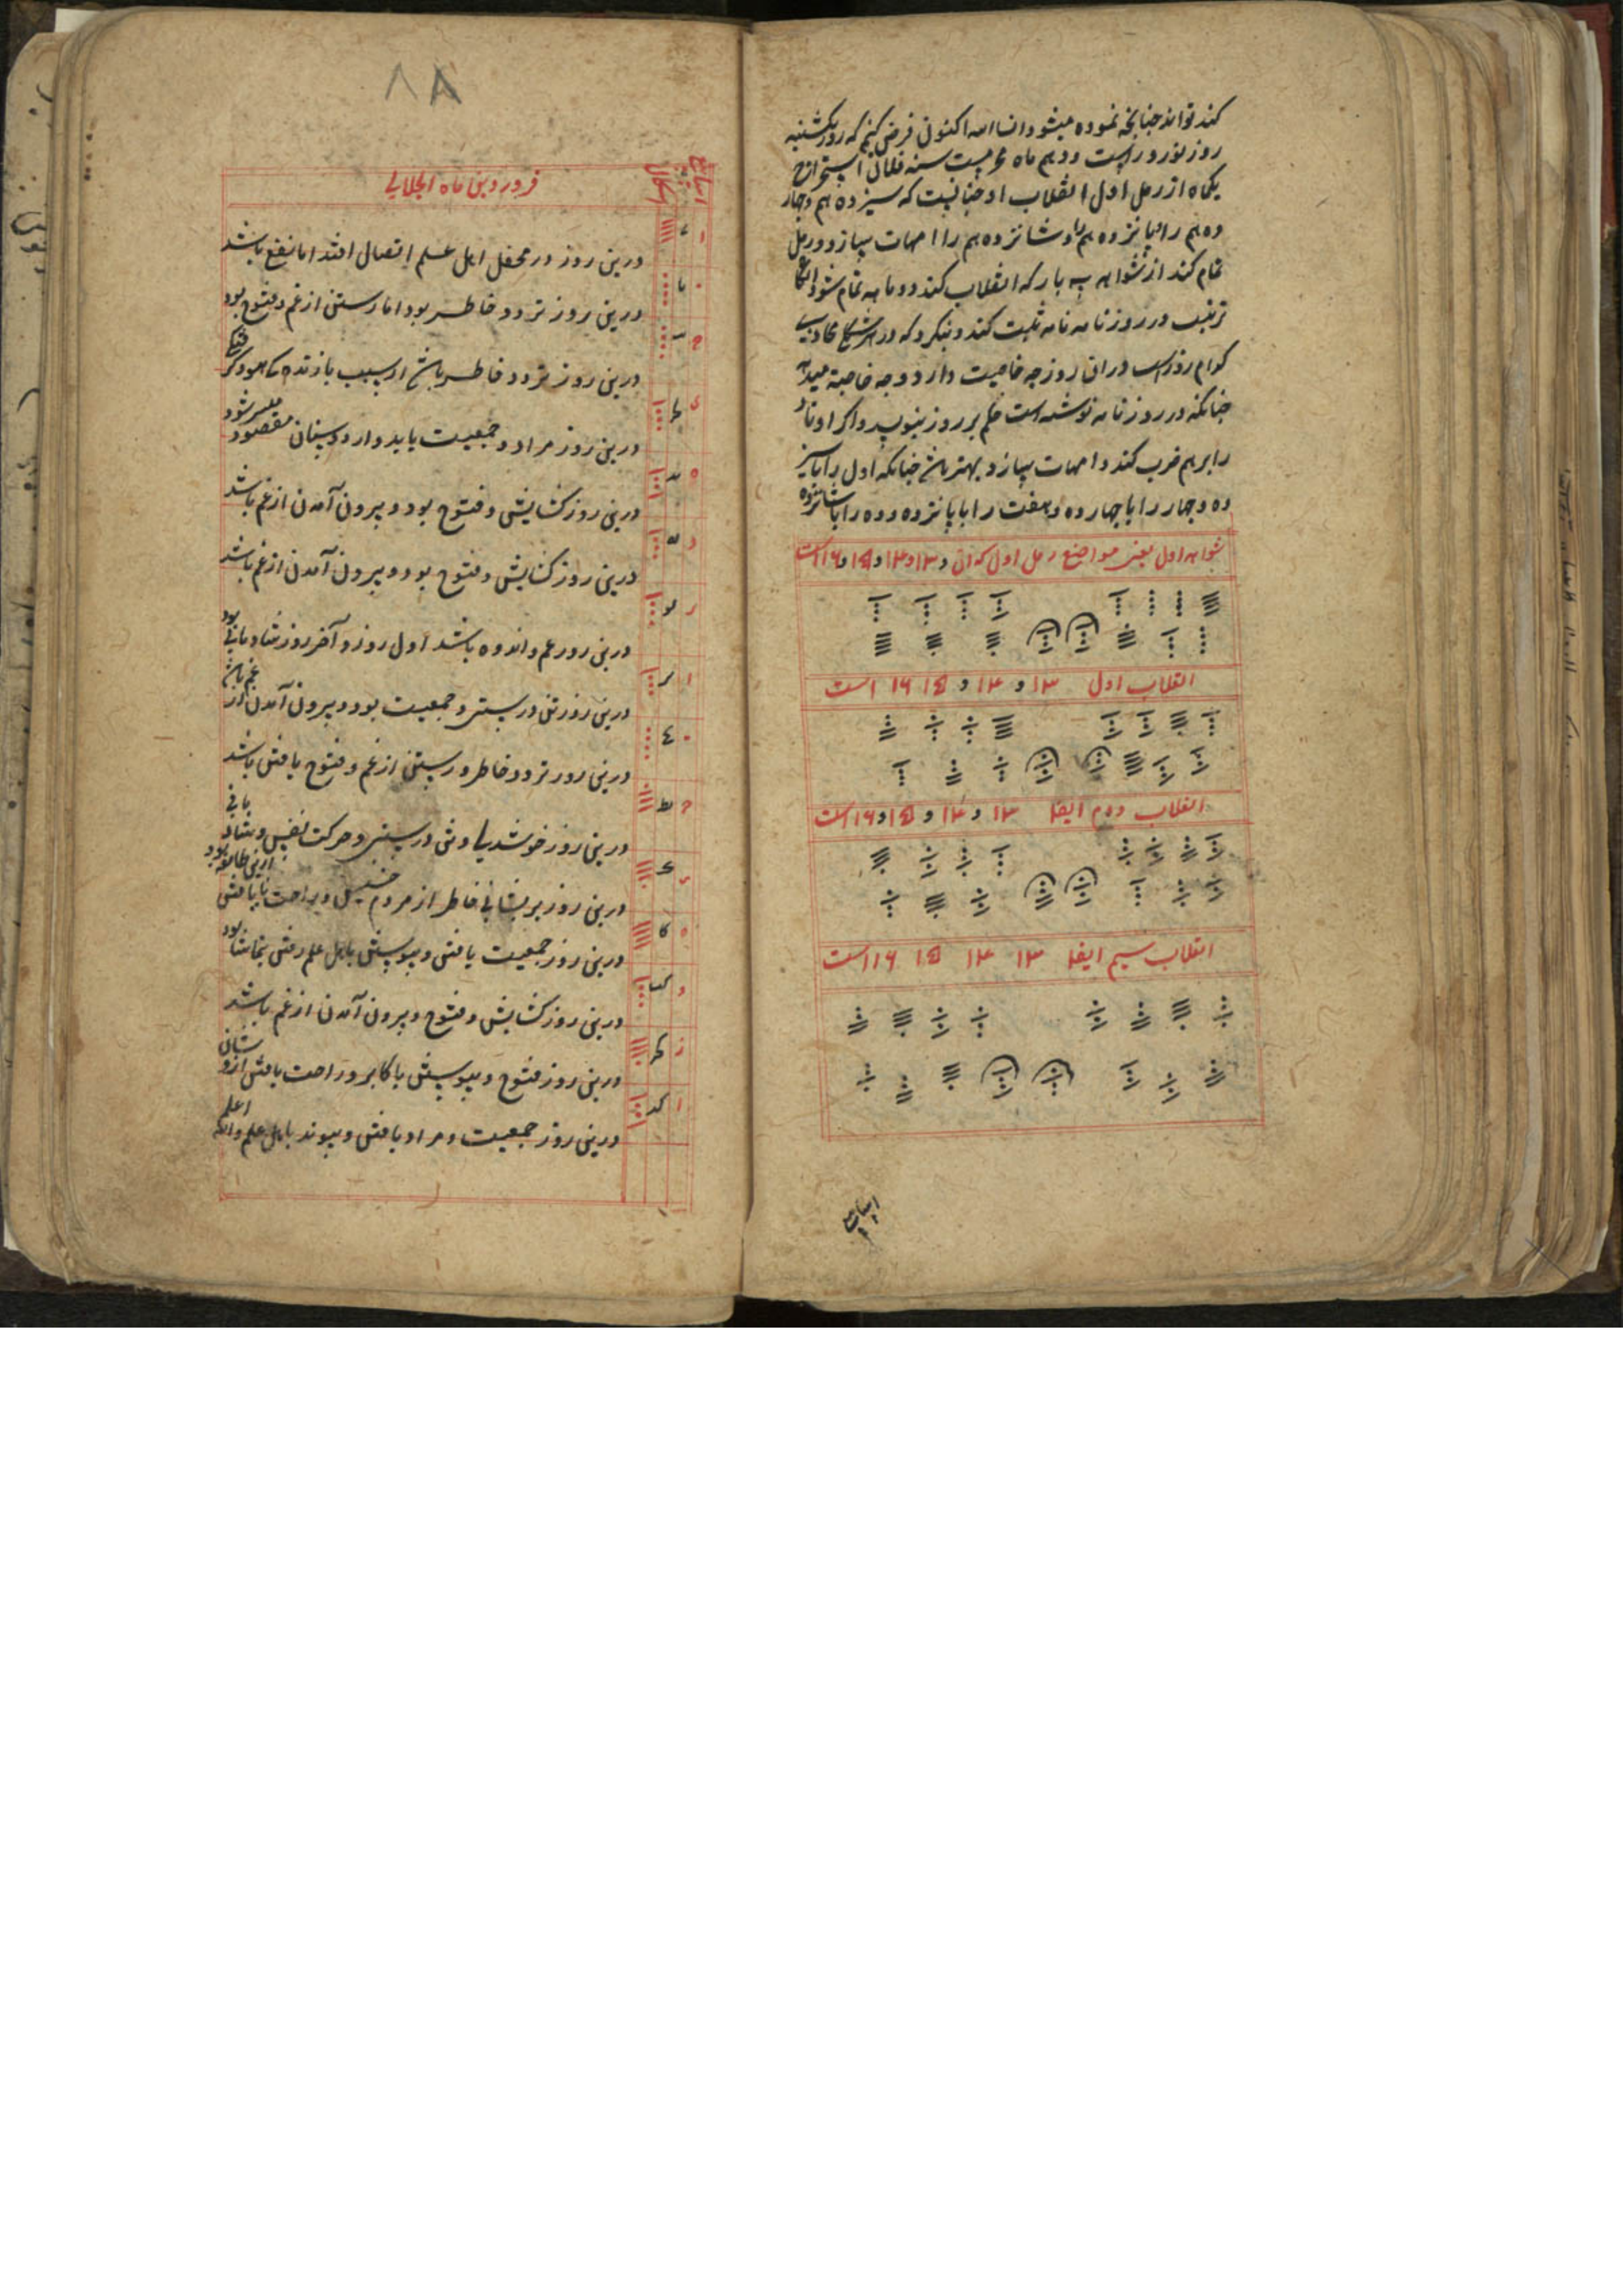 کند تواند چنانچه نموده میشود انشاالله اکنون فرض کنیم که روز یکشنبه
روز نوروز است و دهم ماه محرمست سنه فلان استخراج
یکماه از رمل اول انقلاب او چنانست که سیزدهم و چهار
دهم را و پانزدهم را و شانزدهم را امهات سازد و رمل
تمام کند از شواهد سه بار که انقلاب کند دو ماهه تمام شود
ترتیب در روزنامه نامه ثبت کند و بنکرد که در هر شکل
کدام روز است و ران روز چه خاصیت دارد و چه خاصیة میدهد
چنانکه در روزنامه نوشته است حکم بر روز بنویسد و اکر اوتاد
را برهم ضرب کند و امهات سازد بهتر باشد چنانکه اول را با سیز
ده و چهار را با چهارده و هفت را با پانزده و ده را با شانزده
شواهد اول یعنی مواضع رمل اول که ان ۱۳ و ۱۴ و ۱۵ و ۱۶ است
انقلاب اول ۱۳ و ۱۴ و ۱۵ ۱۶ است
انقلاب دوم ایضا ۱۳ و ۱۴ و ۱۵ و ۱۶ است
انقلاب سیم ایضا ۱۳ ۱۴ ۱۵ ۱۶ است
۸۸
فروردین ماه الجلالی
درین روز در محفل اهل علم اتصال افتد اما نفع باشد
درین روز تردد خاطر بود اما رستن از غم و فتوح بود
درین روز تردد خاطر باشد از سبب
درین روز مراد و جمعیت یابد و از دوستان مقصود میسر شود
درین روز کشایش و فتوح بود و بیرون آمدن از غم باشد
درین روز کشایش و فتوح بود و بیرون آمدن از غم باشد
درین روز غم و اندوه باشد اول روز و آخر روز شادمانی بود
درین روز تن درستی و جمعیت بود و بیرون آمدن از غم باشد
درین روز تردد خاطر و رستن از غم و فتوح یافتن باشد
درین روز خوشدلی و تن درستی و حرکت نفیس و شادمانی
درین روز پریشانی خاطر از مردم و راحت نایافتن ازین طایفه بود
درین روز جمعیت یافتن و پیوستن باهل علم رفتن بتماشا بود
درین روز کشایش و فتوح و بیرون آمدن از غم باشد
درین روز فتوح و پیوستن باکابر و راحت یافتن ازو
درین روز جمعیت و مراد یافتن و پیوند باهل علم والله اعلم